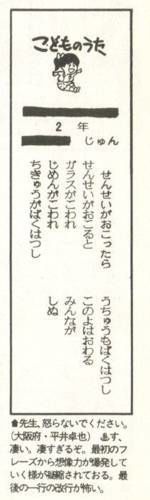 こどものうた
2 年
じゅん
せんせいがおこったら
せんせいがおこると
ガラスがこわれ
じめんがこわれ
ちきゅうがばくはつし
うちゅうもばくはつし
このよはおわる
みんなが
しぬ
▲先生、怒らないでください。
(大阪府・平井卓也) す、
凄い。凄すぎるぞ。最初のフ
レーズから想像力が爆発して
いく様が凝縮されておる。最
後の一行の改行が怖い。